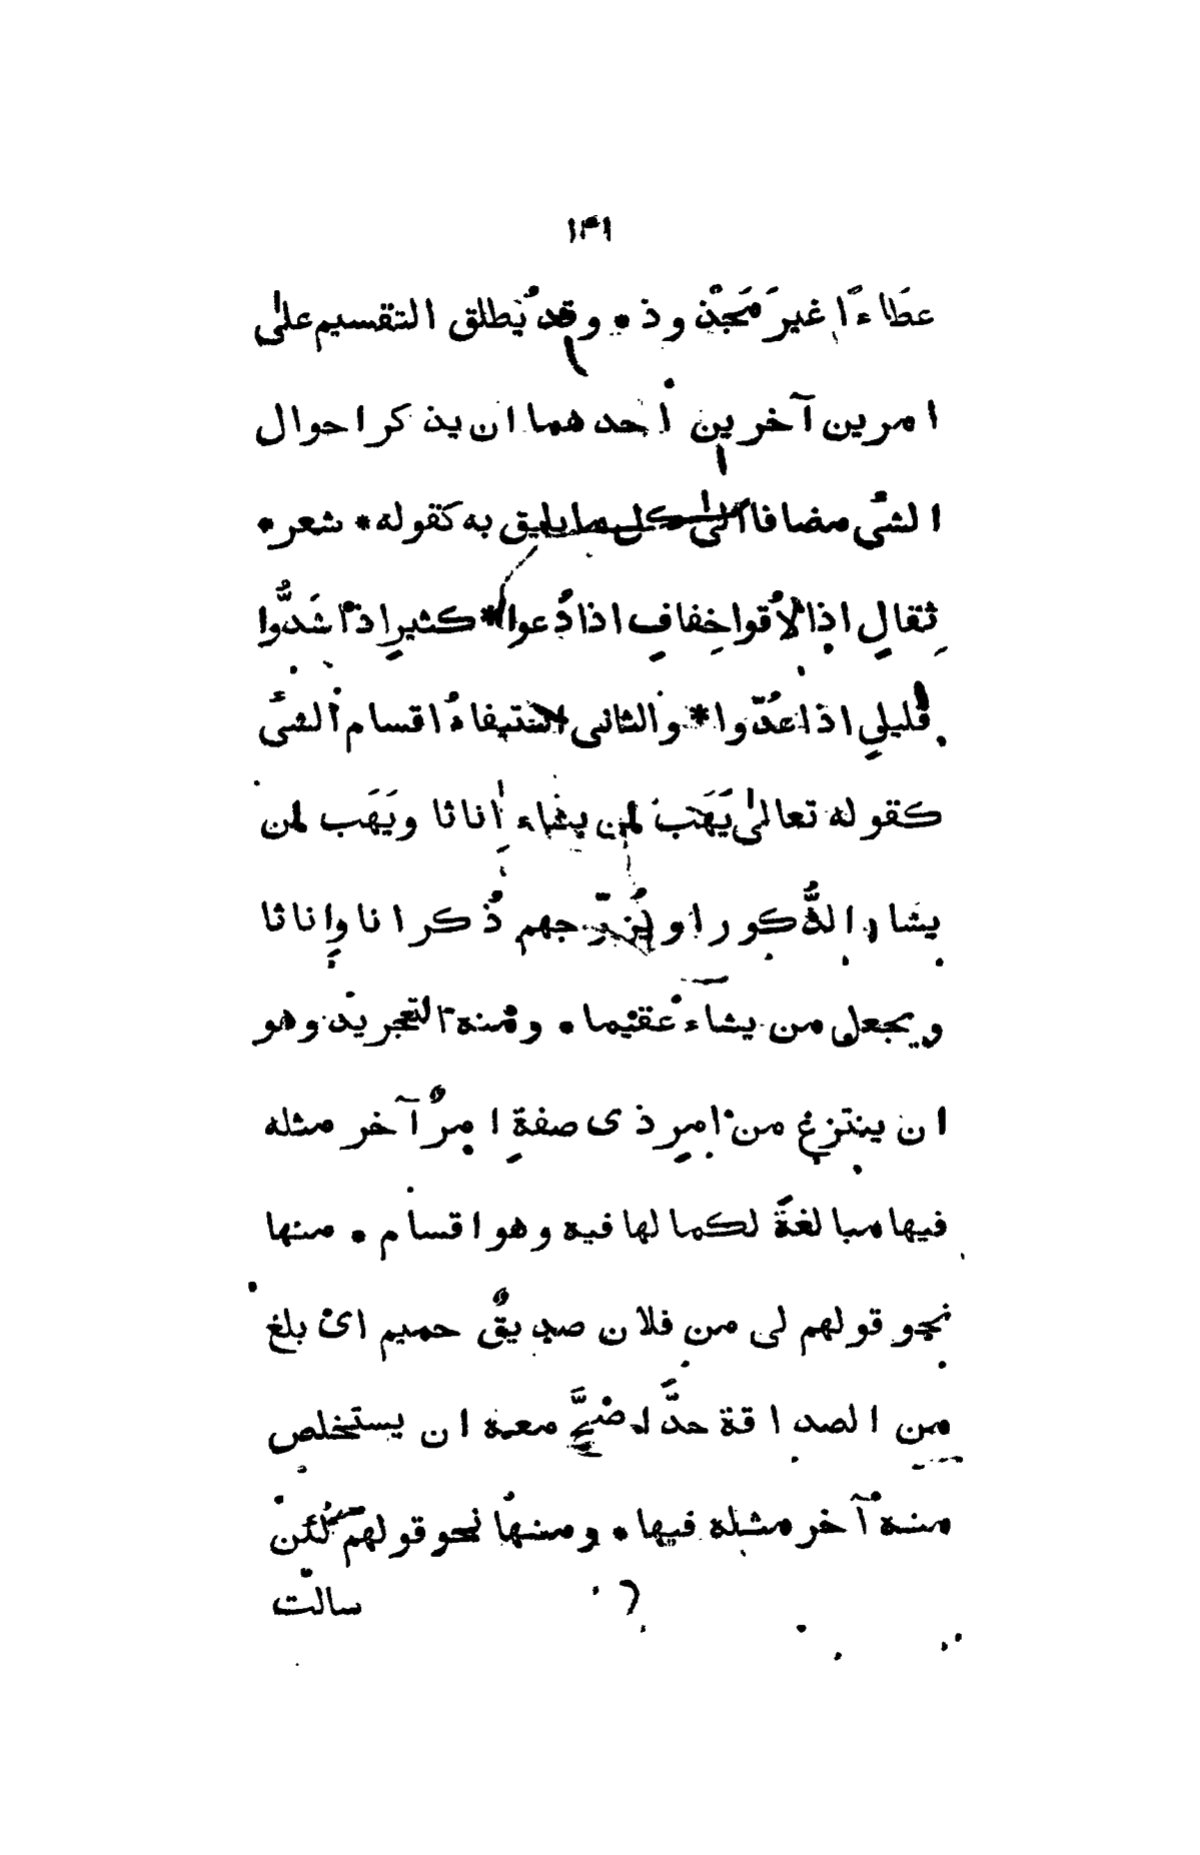 ١٣١
عَطَاءًا غيرَ مَجذوذ * وقد يُطلق التقسيم على
امرين آخرين احدهما ان يذكر احوال
الشئ مضافا الى كل ما يليق به كقوله * شعر *
ثِقالٍ اذا لاقوا خِفافٍ اذا دُعوا * كثيرٍ اذا شَدُّوا
قليلٍ اذا عُدّوا * والثانى استيفاءُ اقسام الشئ
كقوله تعالىٰ يَهَبُ لمن يشاء اِناثا ويَهَب لمن
يشاء الذُّكور او يُزوِّجهم ذُكرانا واِناثا
ويجعل من يشآء عقيما * ومنه التجريد وهو
ان ينتزع من امرٍ ذى صفةٍ امرٌ آخر مثله
فيها مبالغةً لكمالها فيه وهو اقسام * منها
نحو قولهم لى من فلان صديقٌ حميم اى بلغ
من الصداقة حدًّا صَحَّ معه ان يستخلص
منه آخر مثله فيها * ومنها نحو قولهم لئن
سالت